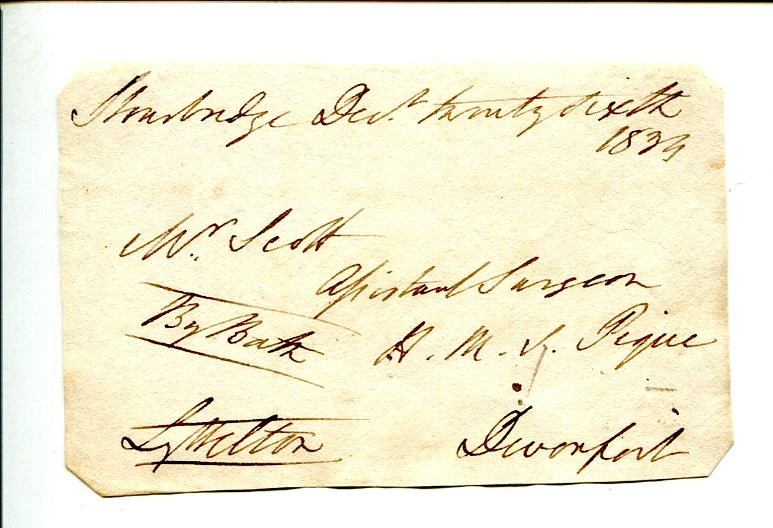 Stourbridge Decr. twenty sixth
1839
Mr. Scott
Assistant Surgeon
By Bath
H. M. S. Pique
Lyttelton
Devonport